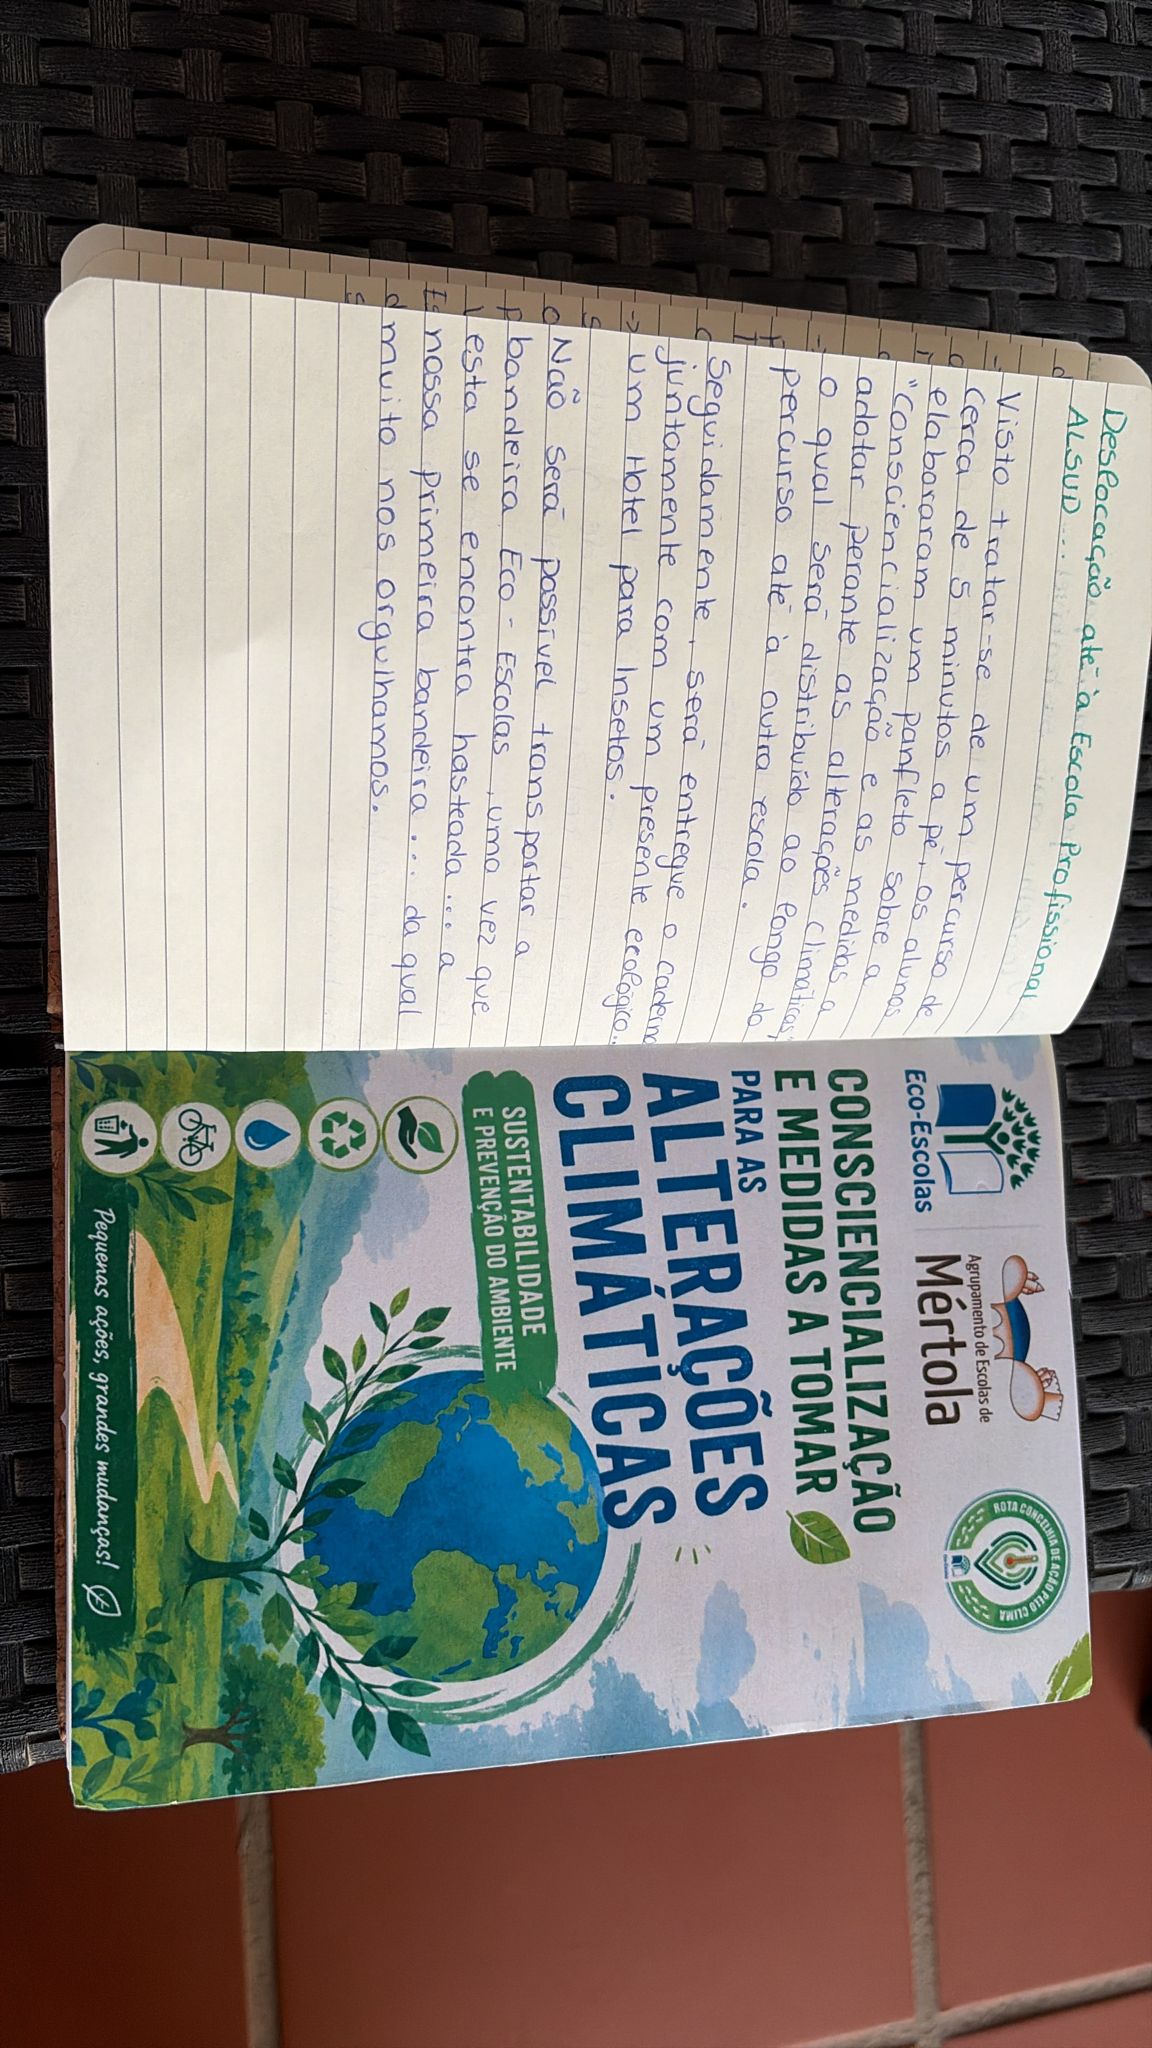 Deslocação até à Escola Profissional
ALSUD...
Visto tratar-se de um percurso de
cerca de 5 minutos a pé, os alunos
elaboraram um panfleto sobre a
"Consciencialização e as medidas a
adotar perante as alterações climáticas",
o qual será distribuído ao longo do
percurso até à outra escola.
Seguidamente, será entregue o caderno
juntamente com um presente ecológico...
um Hotel para Insetos.
Não será possível transportar a
bandeira Eco-Escolas, uma vez que
esta se encontra hasteada... a
nossa primeira bandeira... da qual
muito nos orgulhamos.
Eco-Escolas
Agrupamento de Escolas de
Mértola
ROTA CONCELHIA DE AÇÃO PELO CLIMA
CONSCIENCIALIZAÇÃO
E MEDIDAS A TOMAR
PARA AS
ALTERAÇÕES
CLIMÁTICAS
SUSTENTABILIDADE
E PREVENÇÃO DO AMBIENTE
Pequenas ações, grandes mudanças!